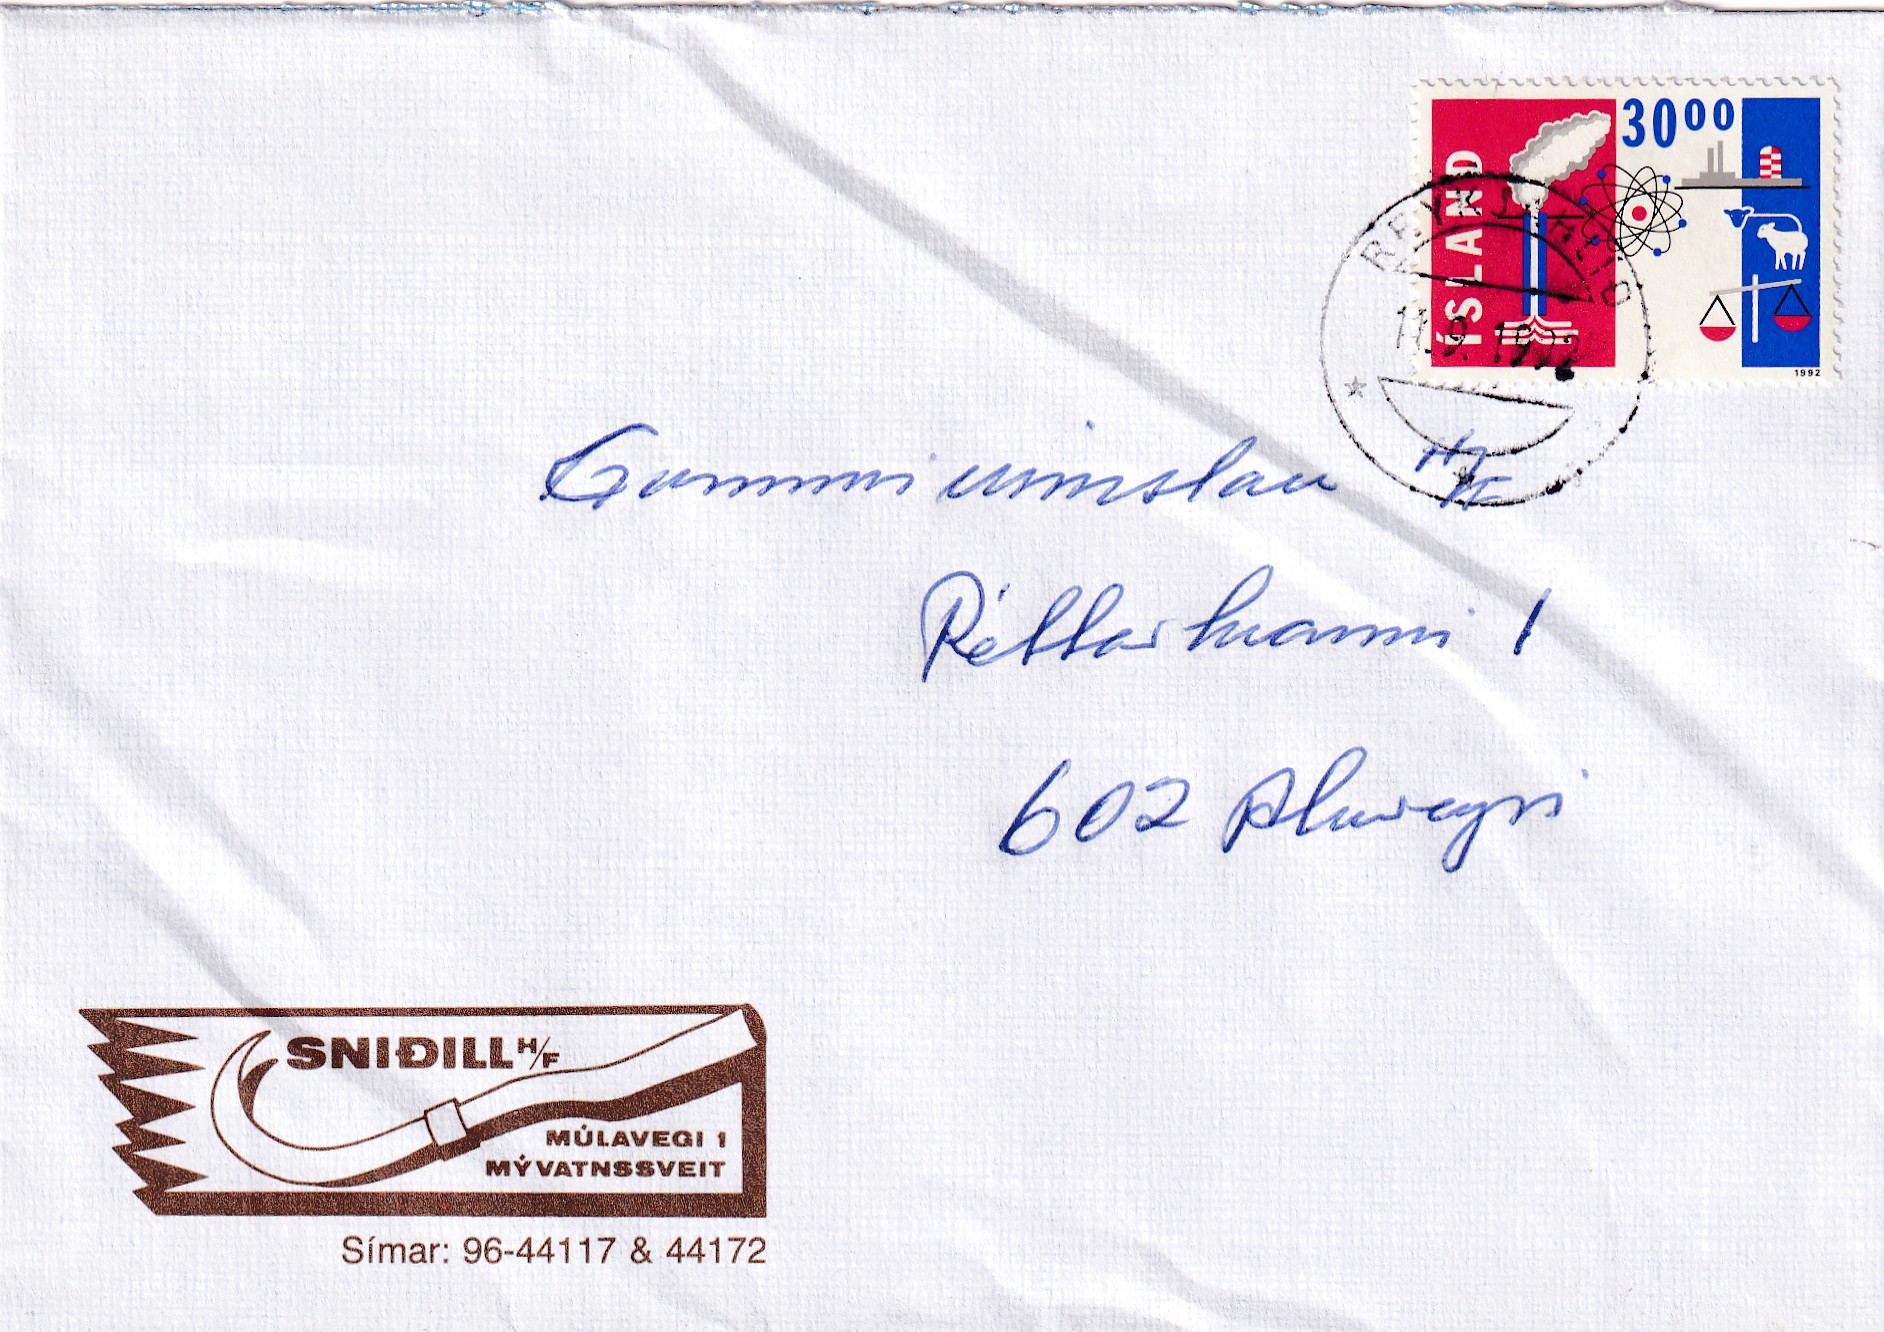 30⁰⁰
ÍSLAND
1992
REYKJAHLÍÐ
11.9.1992
Gúmmívinnslan H/F
Réttarhvammi 1
602 Akureyri
SNIÐILL H/F
MÚLAVEGI 1
MÝVATNSSVEIT
Símar: 96-44117 & 44172